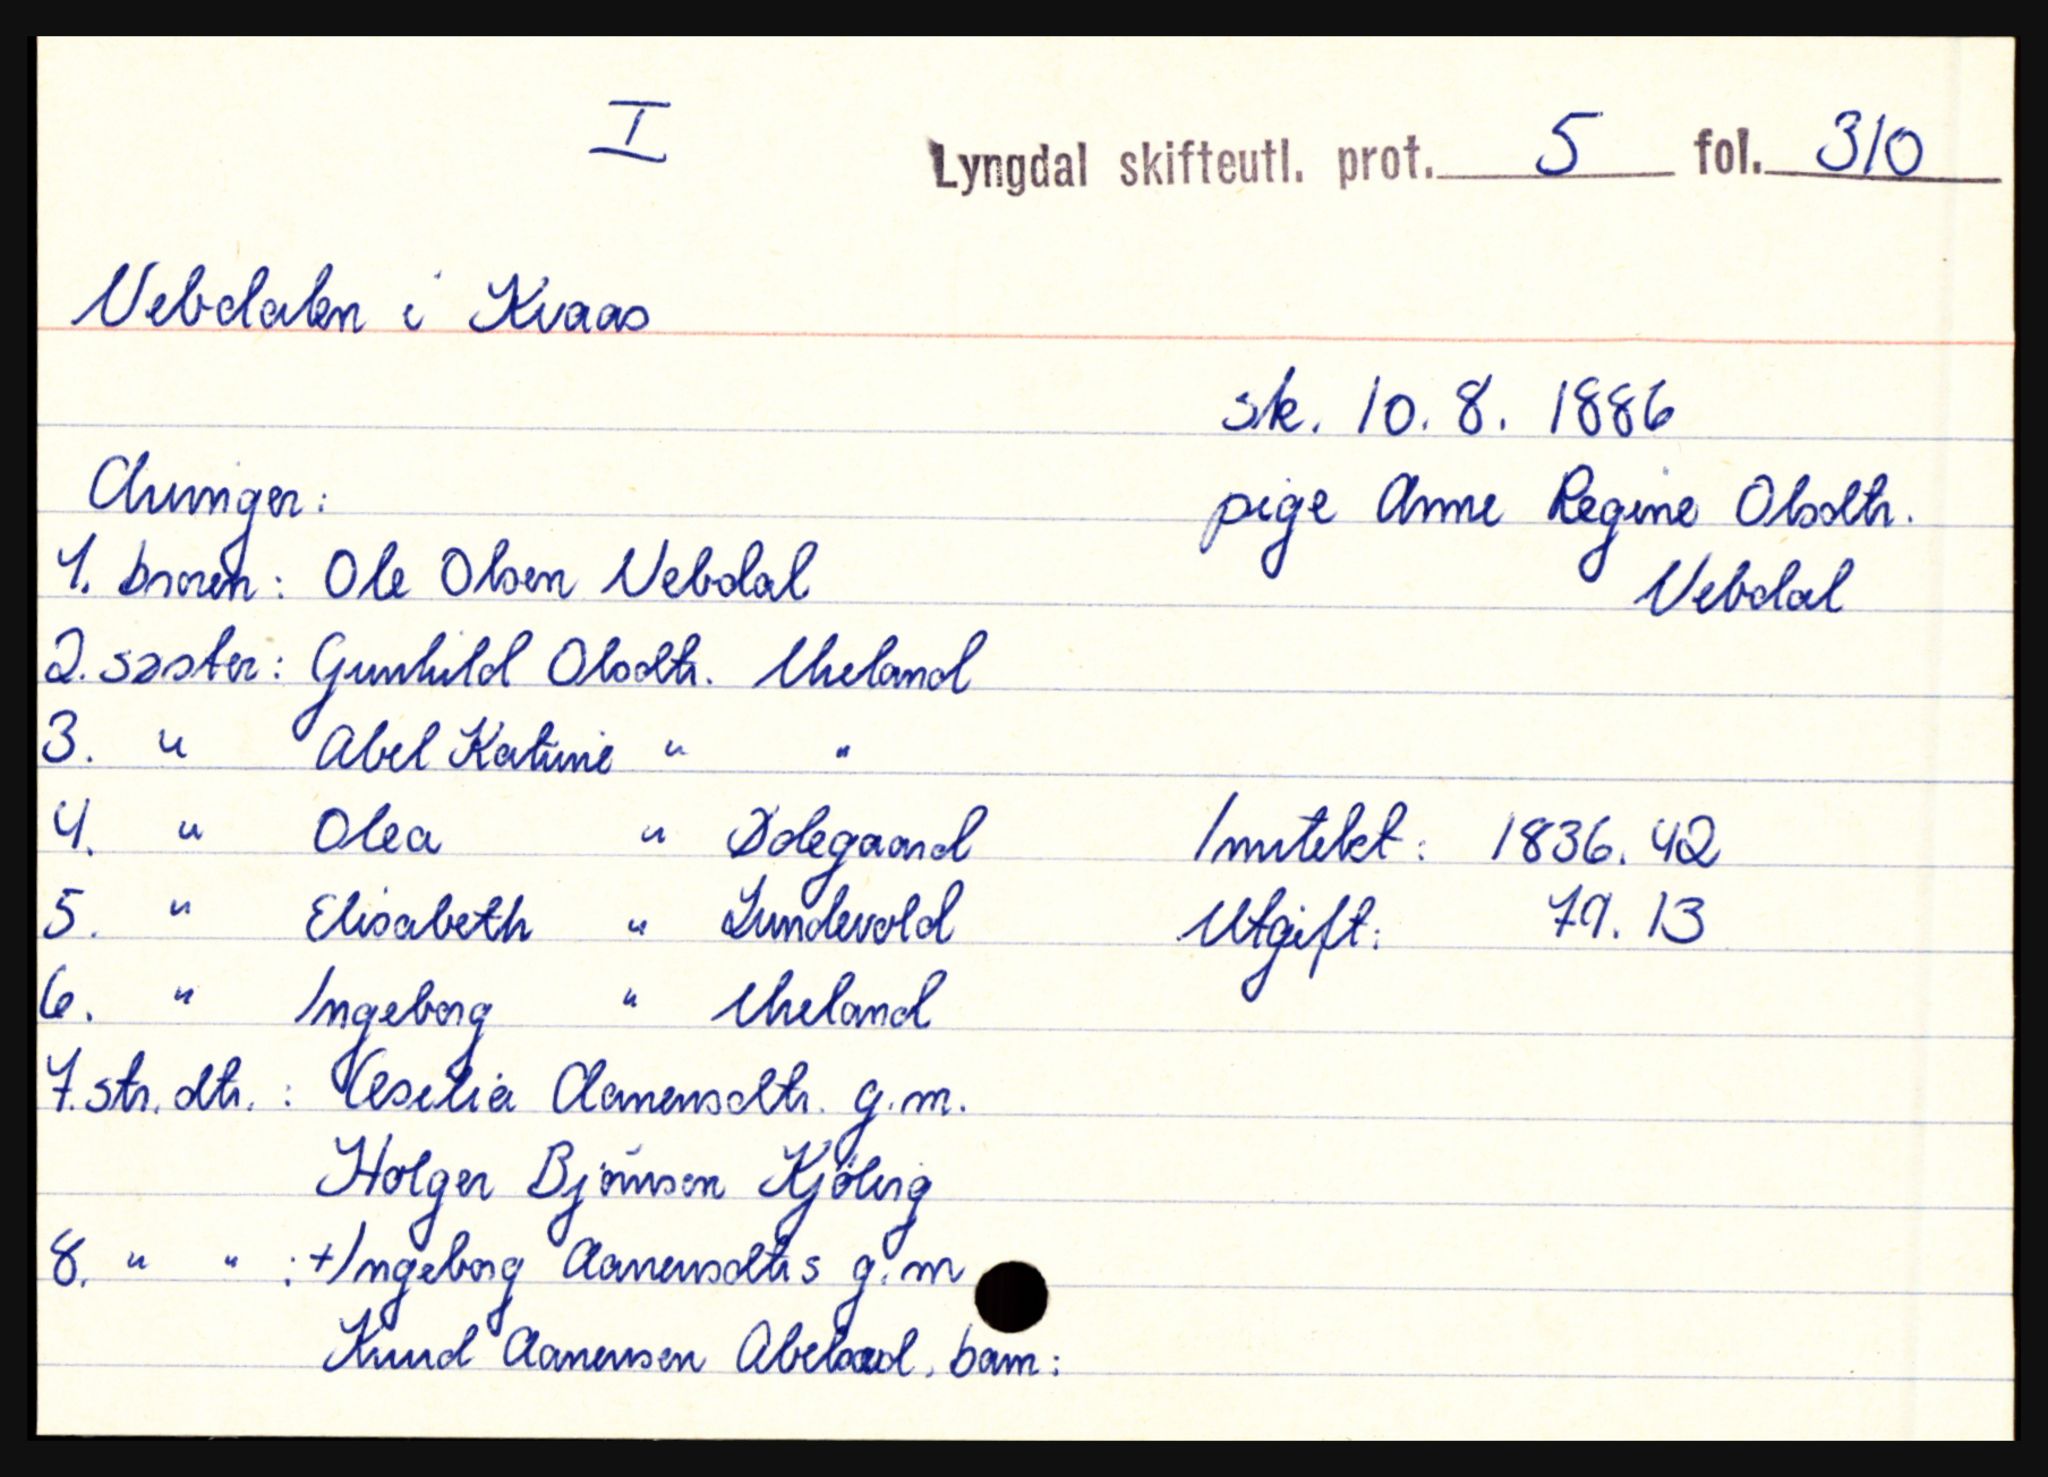 I
Lyngdal skifteutl. prot. 5 fol. 310
Vebdalen i Kvaas
sk. 10. 8. 1886
pige Anne Regine Olsdtr.
Vebdal
Arvinger:
1. broren: Ole Olsen Vebdal
2. søster: Gunhild Olsdtr. Utreland
3. " Abel Katrine " "
4. " Olea " Ødegaard
5. " Elisabeth " Lundevold
6. " Ingeborg " Utreland
7. str. dtr. : Cesilia Aanensdtr. g.m.
Holger Björnsen Kjölvig
8. " " : +Ingeborg Aanensdtrs g.m
Knud Aanensen Abelsæd, barn:
Inntekt: 1836. 42
Utgift: 79. 13